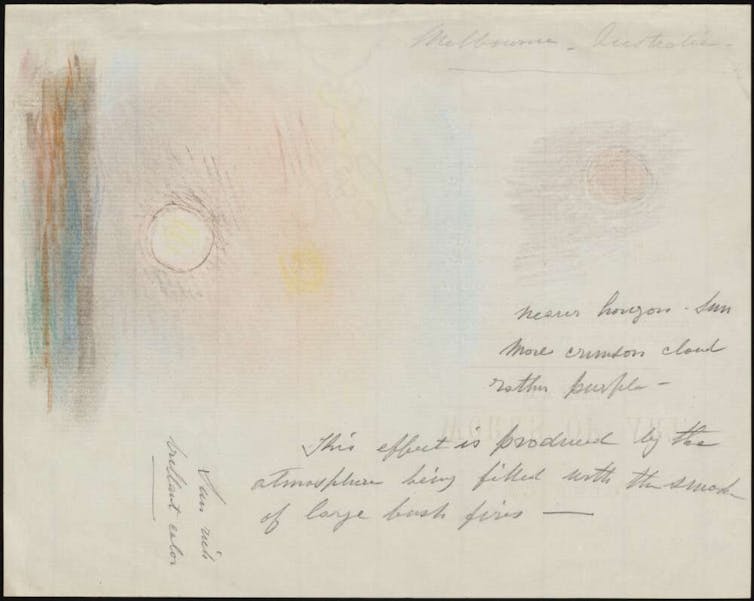 Melbourne - Australia -
nearer horizon - Sun
more crimson cloud
rather purple -
This effect is produced by the
atmosphere being filled with the smoke
of large bush fires —
Sun rich
brilliant color